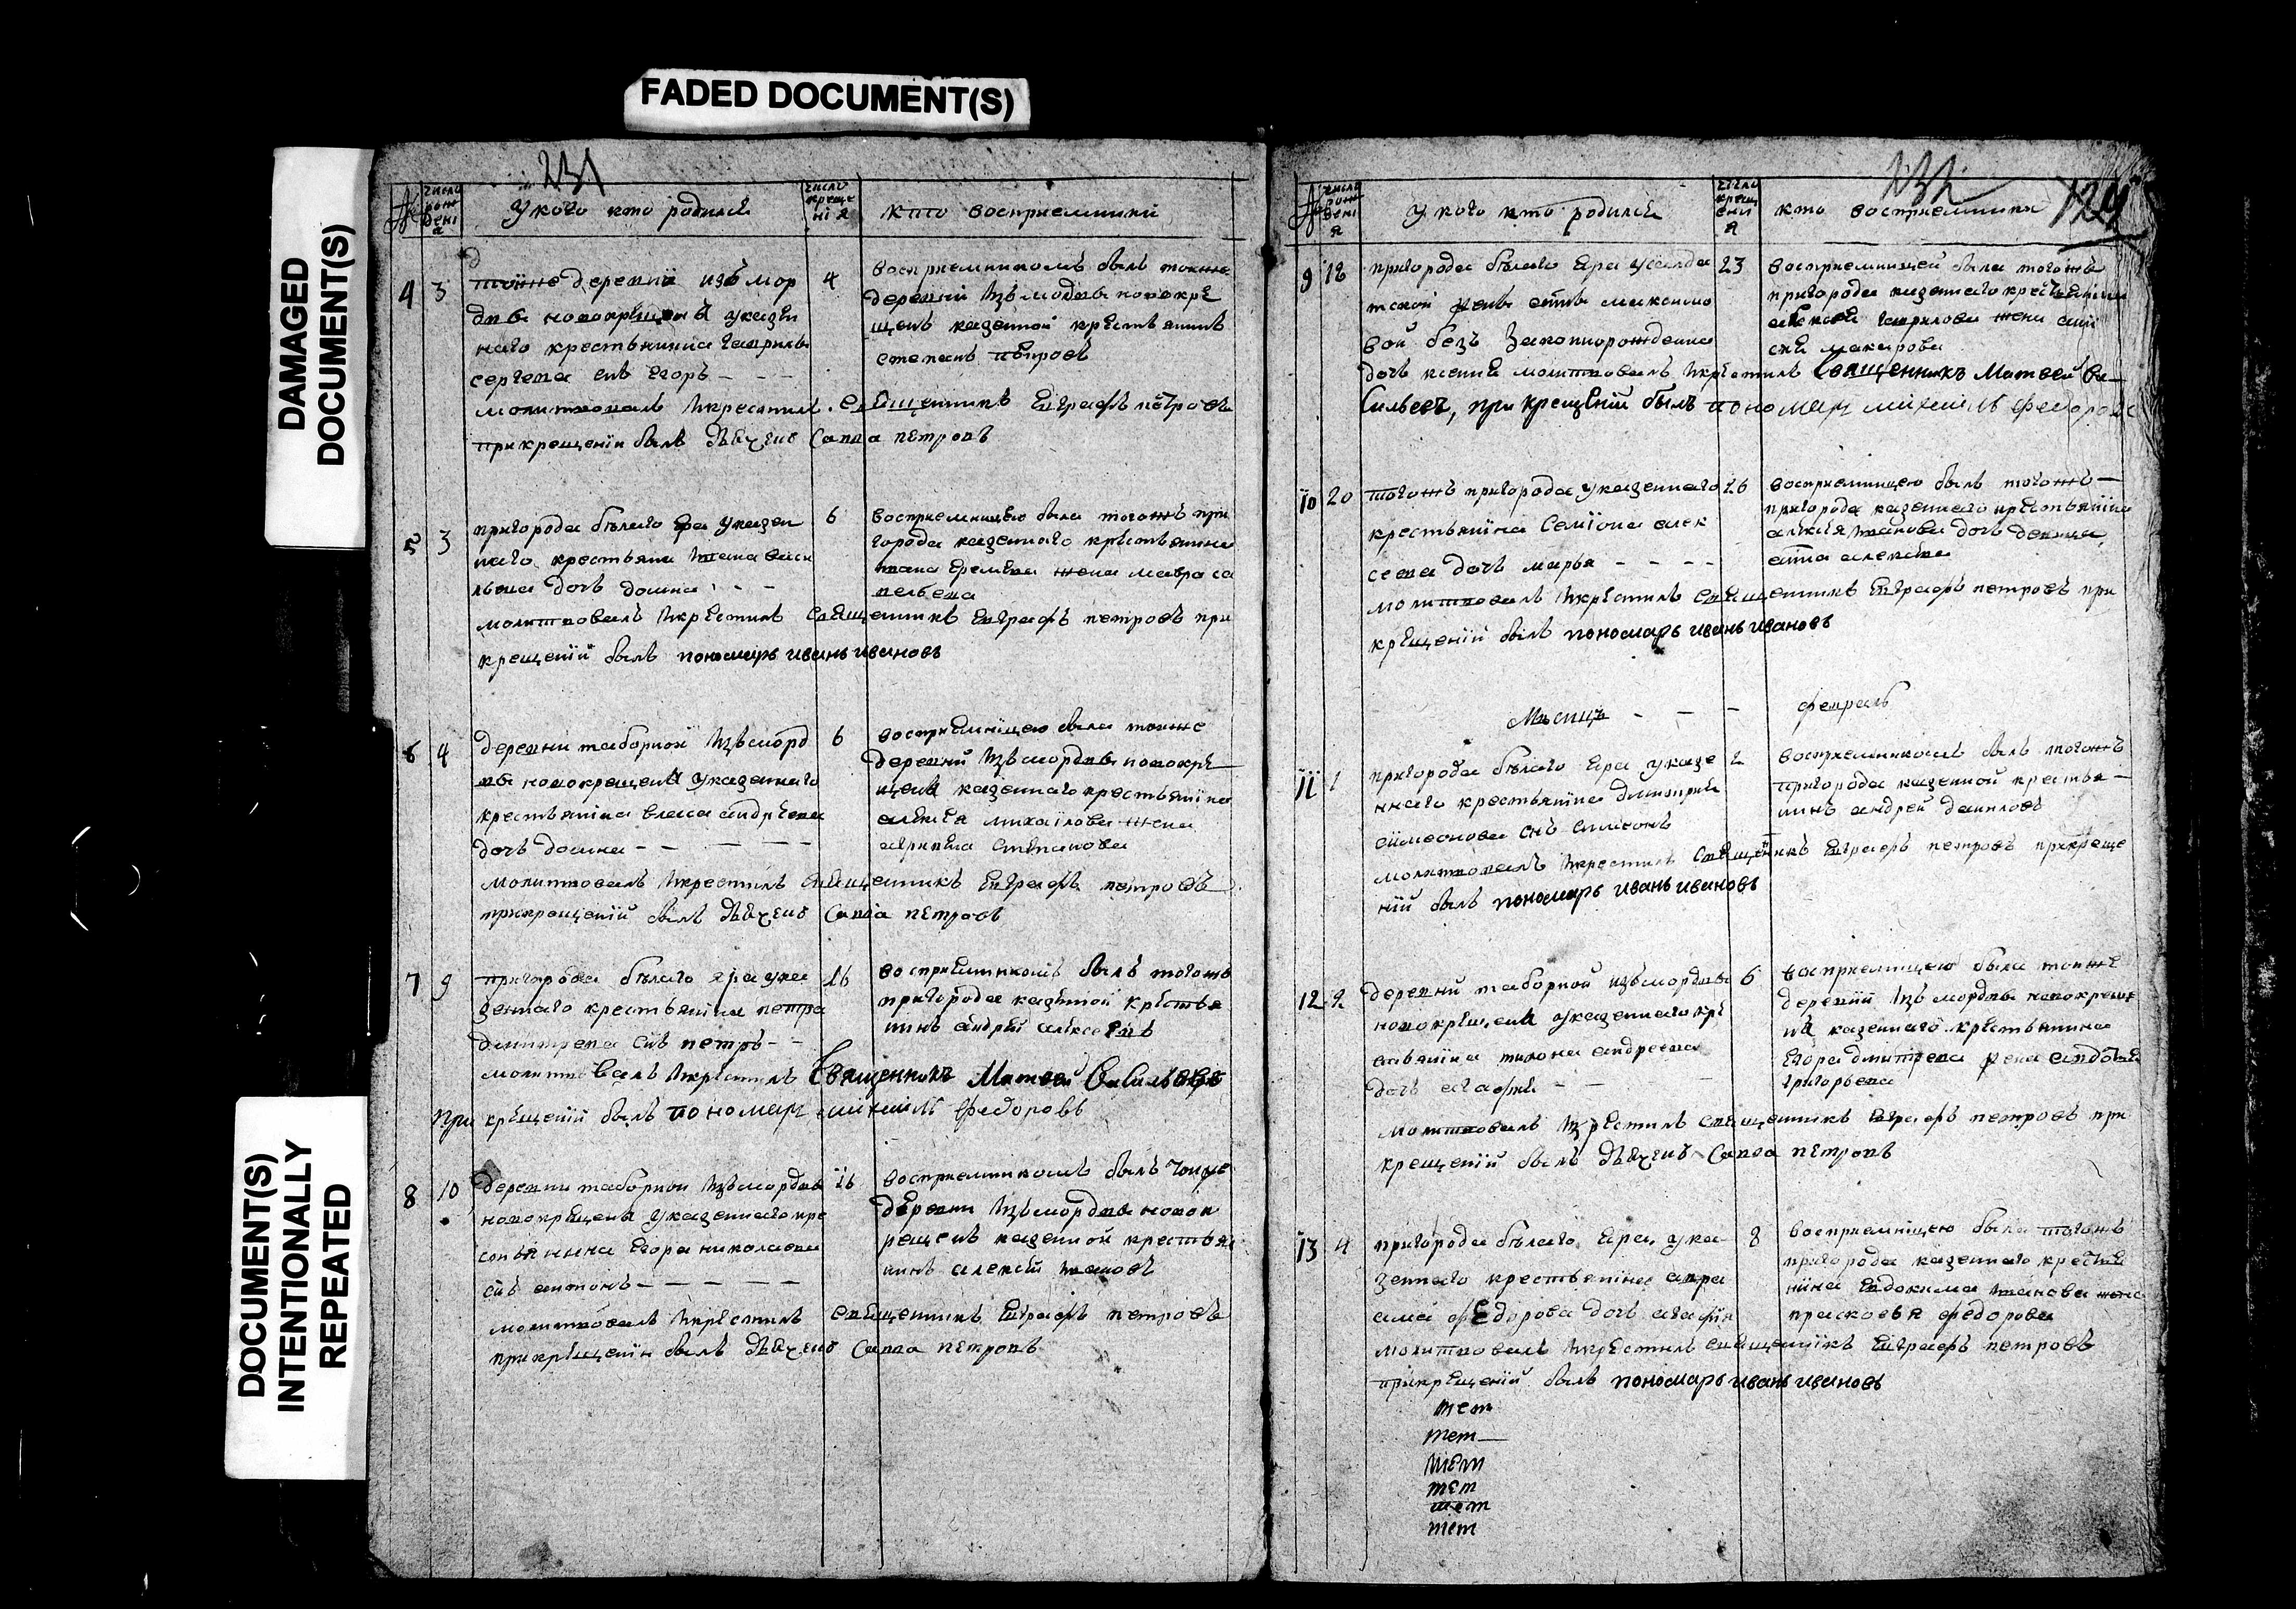 FADED DOCUMENT(S)
DAMAGED
DOCUMENT(S)
DOCUMENT(S)
INTENTIONALLY
REPEATED
231
№ число рождениа
У кого кто родился
число крещенія
кто восприемники
4 3
тоиже деревни изъ мор
двы новокрещена у казен
наго крестьянина гаврилы
сергеева снъ егоръ – – –
молитвовалъ икрестилъ священникъ евграфъ петровъ
прикрещении былъ дьячекъ Савва петровъ
4
восприемникомъ былъ тоиже
деревни изъ мордвы новокре
щенъ казенной крестьянинъ
степанъ петровъ
5 3
пригорода белаго яра у казен
наго крестьяни ивана васи
льева дочь домна – –
молитвовалъ икрестилъ священникъ евграфъ петровъ при
крещении былъ пономарь иванъ ивановъ
6
восприемницею была тогожъ при
города казеннаго крестьянина
ивана еремеева жена мавра са
вельева
6 4
деревни таборной изъ морд
вы новокрещена у казеннаго
крестьянина власа андреева
дочь домна – – – –
молитвовалъ икрестилъ священникъ евграфъ петровъ
прикрещении былъ дьячекъ Савва петровъ
6
восприемницею была тоиже
деревни изъ мордвы новокре
щена казеннаго крестьянина
алексея михаилова жена
агрипина степанова
7 9
пригорода белаго яра у ка
зеннаго крестьянина петра
дмитрева снъ петръ – –
молитвовалъ икрестилъ Священникъ Матвей Васильевъ
При крещении былъ пономарь михаилъ федоровъ
16
восприемникомъ былъ тогожъ
пригорода казенной крестья
нинъ андрей алексеевъ
8 10
деревни таборной изъ мордвы
новокрещена у казеннаго кре
стьянина егора николаева
снъ антонъ – – – –
молитвовалъ икрестилъ священникъ евграфъ петровъ
прикрещении былъ дьячекъ Савва петровъ
16
восприемникомъ былъ тоиже
деревни изъ мордвы новок
рещенъ казенной крестья
нинъ алексей ивановъ
232
124
№ число рожденія
У кого кто родился
число крещения
кто восприемники
9 18
пригорода белаго яра у салда
тской максимо
вой безъ законнорожденна
дочь ксения молитвовалъ икрестилъ Священникъ Матвей Ва
сильевъ, при крещений былъ пономарь михаилъ федоровъ
23
восприемницей была тогожъ
пригорода казеннаго крестьянина
гаврилова жена
макарова
10 20
тогожъ пригорода у казеннаго
крестьянина Семиона алек
сеева дочь марья – – – –
молитвовалъ икрестилъ священникъ евграфъ петровъ при
крещений былъ пономарь иванъ ивановъ
26
восприемницею былъ тогожъ –
пригорода казеннаго крестьянина
алексея иванова дочь
алексеева
Месицъ – – – февраль
11 1
пригорода белаго яра у казе
ннаго крестьянина дмитрия
симеонова снъ симионъ
молитвовалъ икрестилъ священникъ евграфъ петровъ прикреще
ний былъ пономарь иванъ ивановъ
2
восприемникомъ былъ тогожъ
пригорода казенной крестья –
нинъ андрей даниловъ
12 2
деревни таборной изъ мордвы
новокрещена у казеннаго кре
стьянина тихона андреева
дочь агафия – – –
молитвовалъ икрестилъ священникъ евграфъ петровъ при
крещений былъ дьячекъ Савва петровъ
6
восприемницею была тоиже
деревни изъ мордвы новокреще
на казеннаго крестьянина
егора дмитрева жена авдотья
григорьева
13 4
пригорода белаго яра у ка
зеннаго крестьянина авра
ама федорова дочь агафия
молитвовалъ икрестилъ священникъ евграфъ петровъ
прикрещений былъ пономарь иванъ ивановъ
8
восприемницею была тогожъ
пригорода казеннаго крестья
нина евдокима иванова жена
прасковья федорова